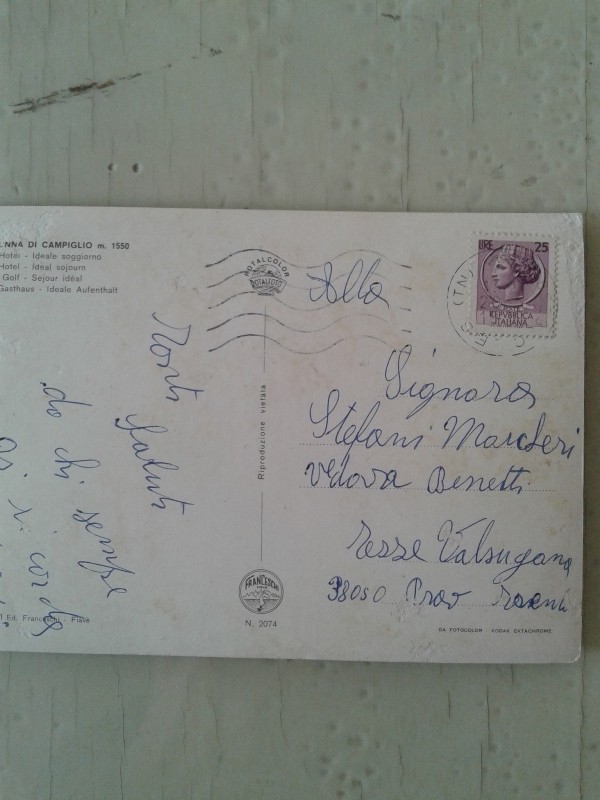 NNA DI CAMPIGLIO m. 1550
Hotel - Ideale soggiorno
Hotel - Idéal sojourn
Golf - Séjour idéal
Gasthaus - Ideale Aufenthalt
ROTALCOLOR
ROTALFOTO
LIRE 25
REPVBBLICA
ITALIANA
(TN)
Alla
Signora
Stefani
Vedova Benetti
Tesse Valsugana
38050 Prov
saluti
da chi sempre
si corda
Riproduzione vietata
FRANCESCHI
N. 2074
Ed. Franceschi - Piave
DA FOTOCOLOR - KODAK EKTACHROME